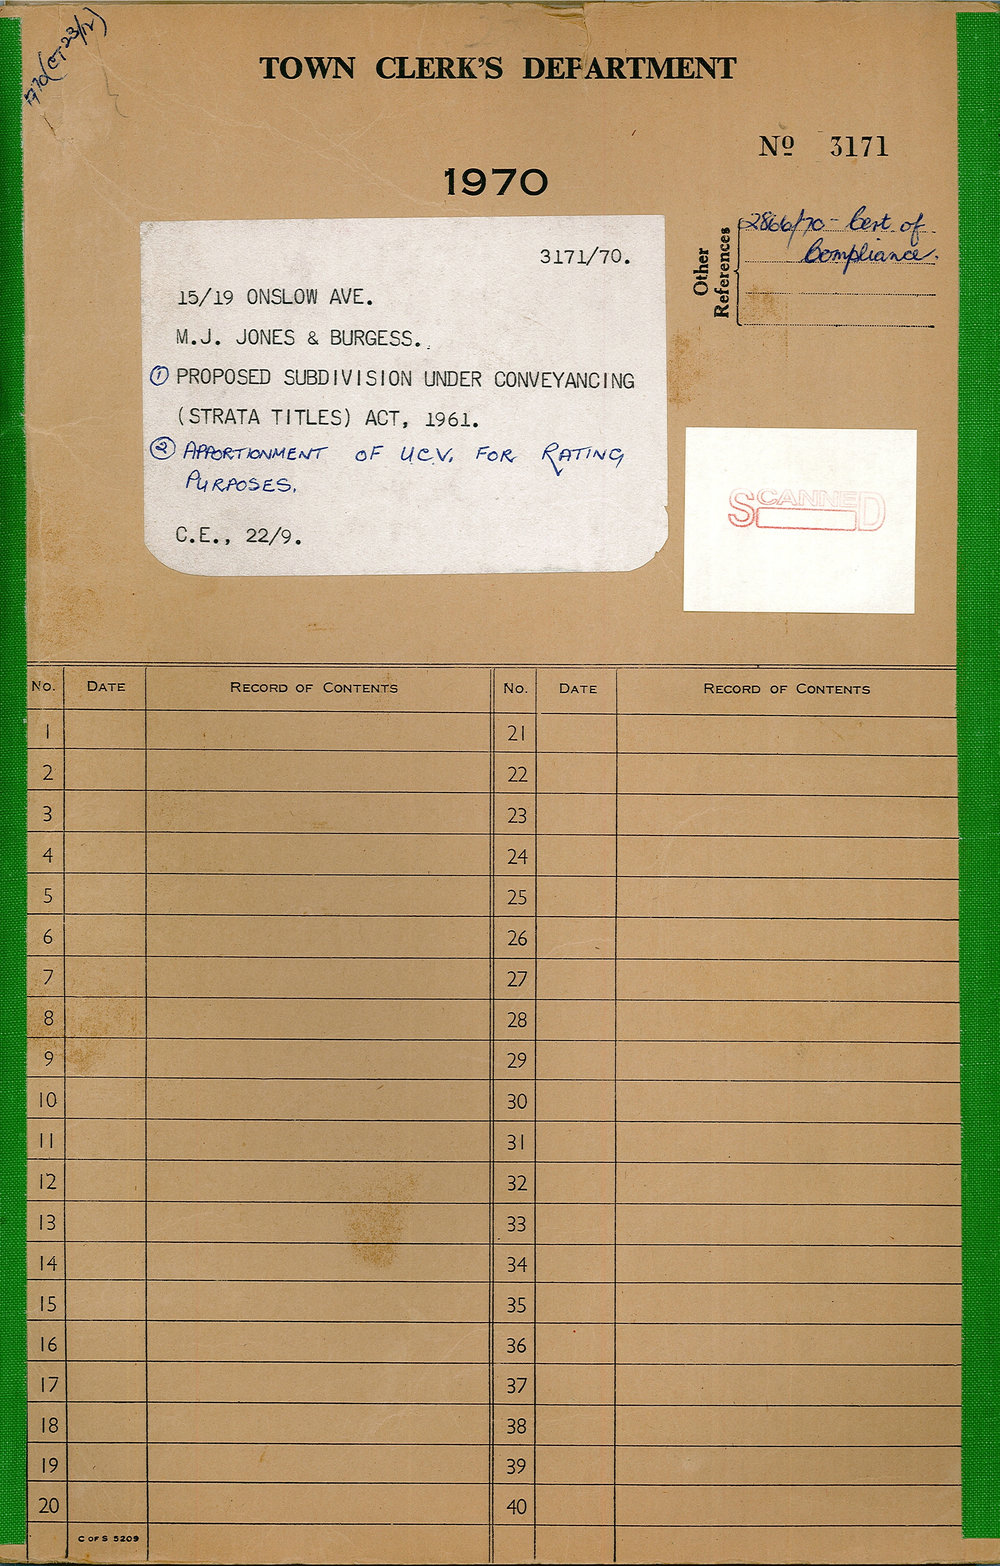 TOWN CLERK'S DEPARTMENT
Nº 3171
1970
Other References
2866/70 - Cert. of
Compliance.
3171/70.
15/19 ONSLOW AVE.
M.J. JONES & BURGESS.
① PROPOSED SUBDIVISION UNDER CONVEYANCING
(STRATA TITLES) ACT, 1961.
② APPORTIONMENT OF U.C.V. FOR RATING
PURPOSES.
C.E., 22/9.
SCANNED
No. DATE RECORD OF CONTENTS No. DATE RECORD OF CONTENTS
1 21
2 22
3 23
4 24
5 25
6 26
7 27
8 28
9 29
10 30
11 31
12 32
13 33
14 34
15 35
16 36
17 37
18 38
19 39
20 40
C OF S 5209